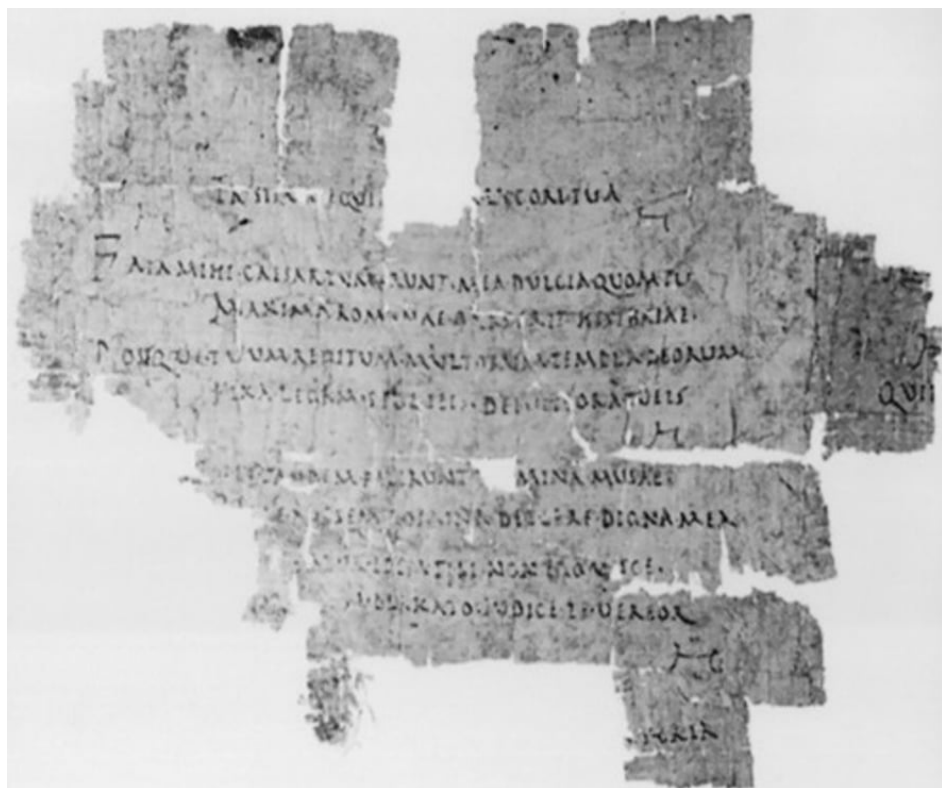 TIA NEQVIT LYCORI·TVA
FATA·MIHI·CAESAR·TVM·ERVNT·MEA·DVLCIA·QVOM·TV
MAXIMA·ROMANAE·PARS·ERIT·HISTORIAE
POSTQVE·TVVM·REDITVM·MVLTORVM·TEMPLA·DEORVM
FIXA·LEGAM·SPOLIEIS·DEIVITIORA·TVEIS
QVI
TANDEM·FECERVNT MINA·MVSAE
POSSEM·DOMINA·DEICERE·DIGNA·MEA
TIBI·NON·EGO·VISCE
KATO·IVDICE·TE·VEREOR
TYRIA